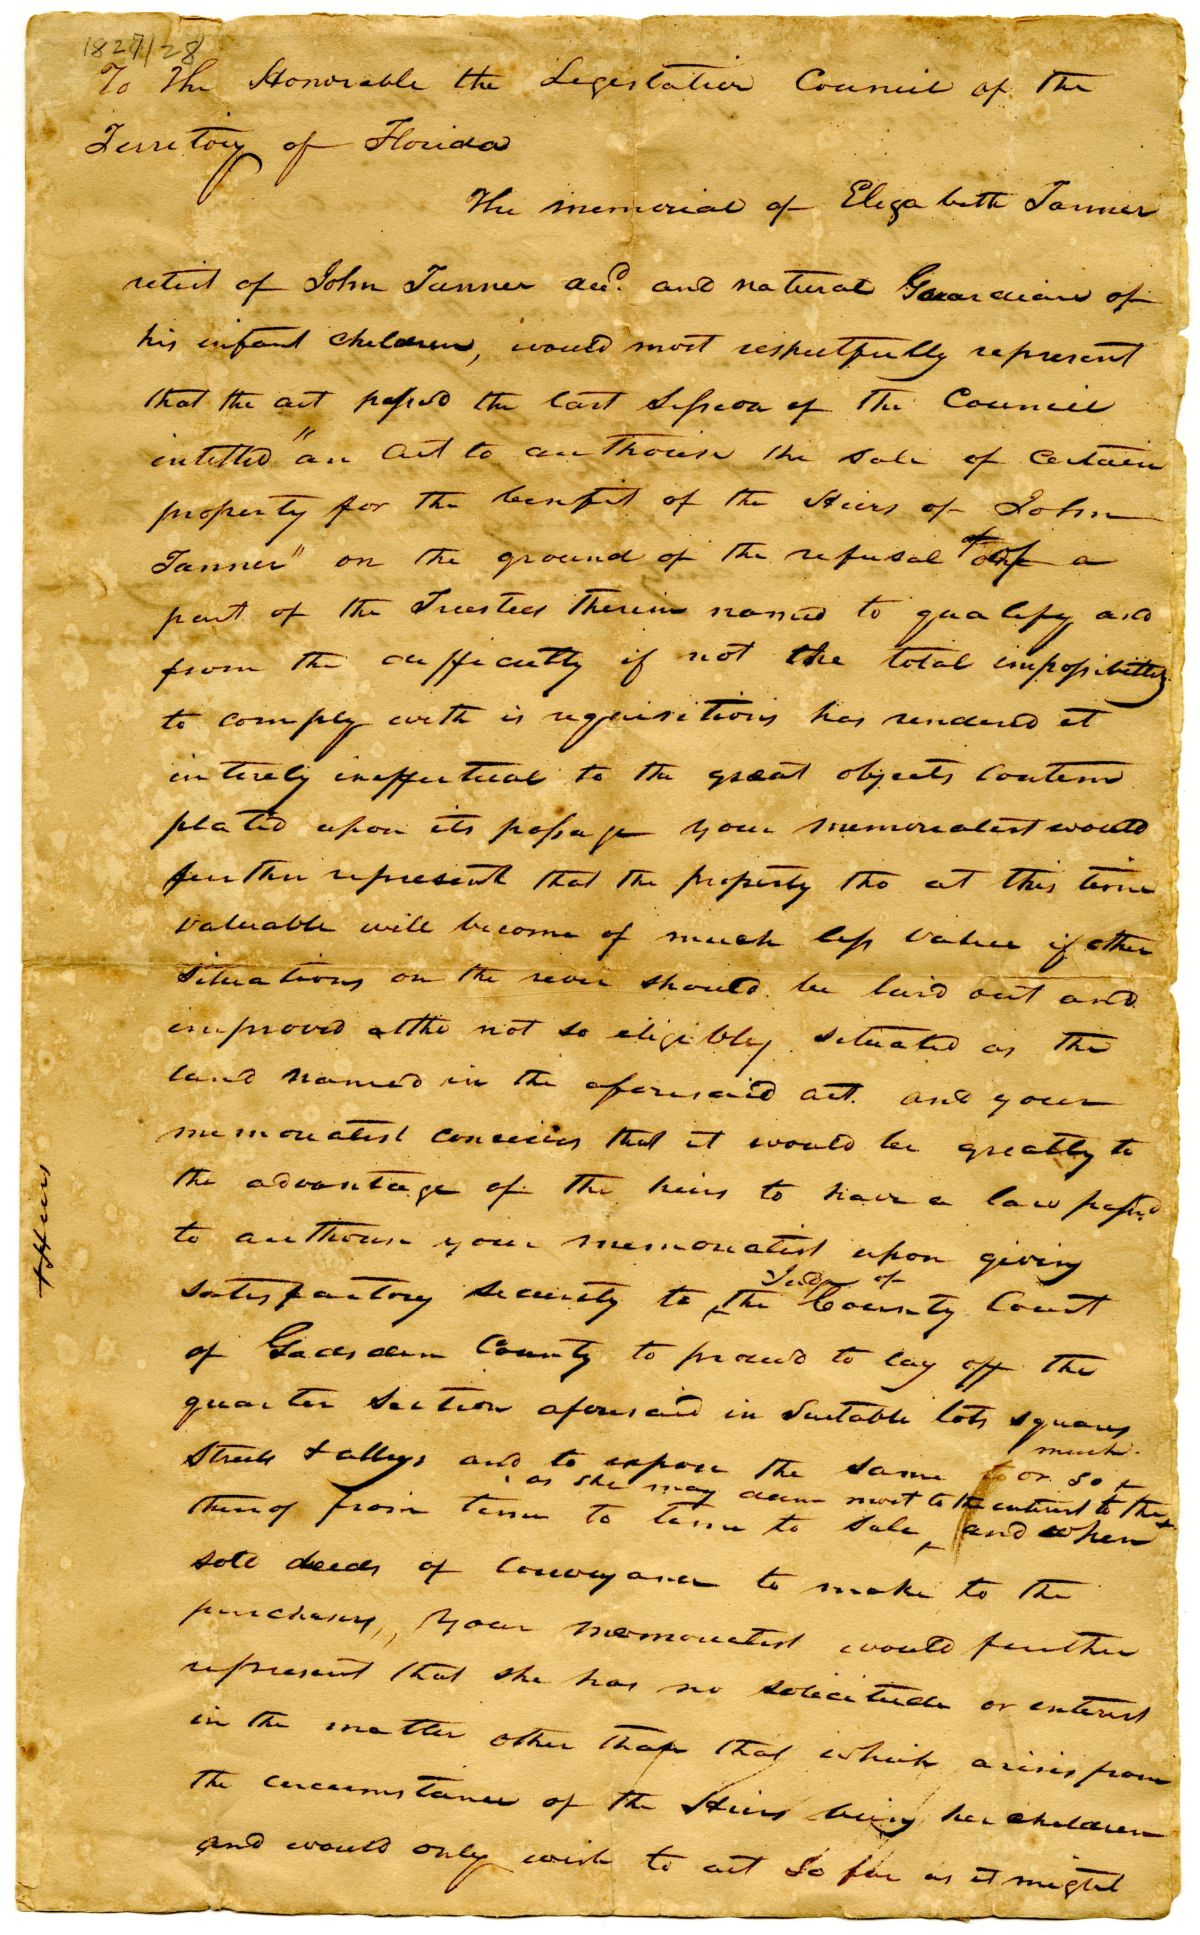 1827/28
To the Honorable the Legislative Council of the
Territory of Florida
The memorial of Elizabeth Tanner
relict of John Tanner decd. and natural Guardian of
his infant children, would most respectfully represent
that the act passed the last Session of the Council
intitled "an Act to authorise the sale of certain
property for the benefit of the Heirs of John
Tanner" on the ground of the refusal of a
part of the Trustees therein named to qualify and
from the difficulty if not the total impossibility
to comply with is requisitions has rendered it
intirely ineffectual to the great objects contem
plated upon its passage your memorialist would
further represent that the property tho at this time
valuable will become of much less value if other
situations on the river should be laid out and
improved altho not so eligibly situated as the
land named in the aforesaid act. and your
memorialist conceives that it would be greatly to
the advantage of the heirs to have a law passed
to authorise your memorialist upon giving
satisfactory security to the Judge of County Court
of Gadsden County to proceed to lay off the
quarter section aforesaid in suitable lots squares
Streets & alleys and to expose the same or so much
thereof from time to time to sale, as she may deem most to the interest to the and when
sold deeds of conveyance to make to the
purchasers,, Your memorialist would further
represent that she has no solicitude or interest
in the matter other than that which arises from
the circumstance of the Heirs being her children
and would only wish to act so far as it might
Heirs